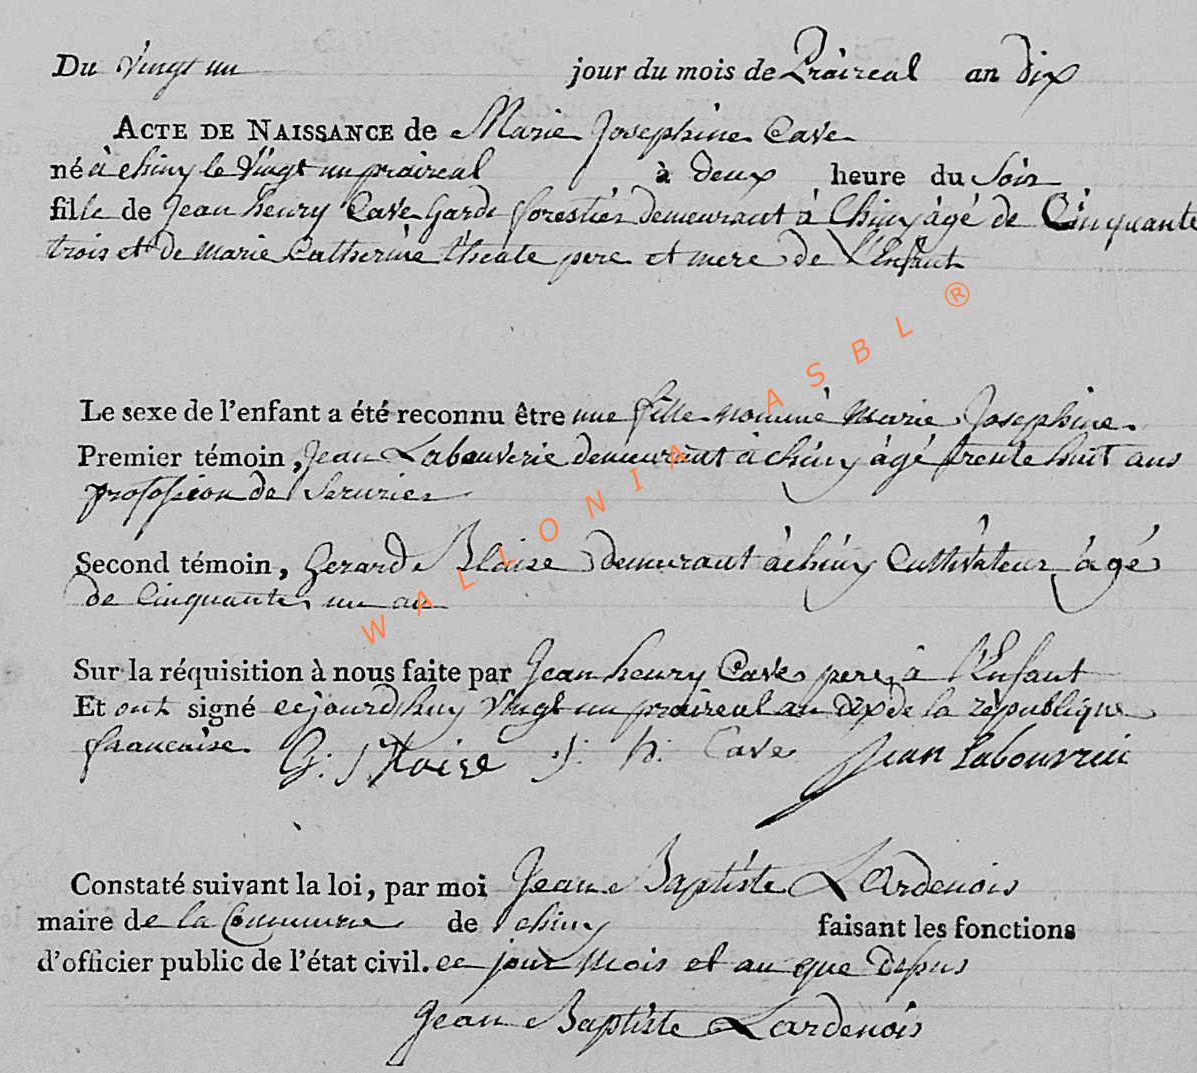 Du Vingt un jour du mois de Prairéal an dix
ACTE DE NAISSANCE de Marie Josephine Cave
né à chiny le Vingt un praireal à deux heure du Soir
fille de Jean henry Cave Garde forestier demeurant à Chiny âgé de Cinquante
trois et de marie Catherine théate pere et mere de L'Enfant
Le sexe de l'enfant a été reconnu être une fille nommé marie Josephine.
Premier témoin, Jean Labouverie demeurant à chiny âgé trente huit ans
profession de Serurier
Second témoin, Gerard Blaise demeurant à chiny Cultivateur âgé
de Cinquante un an
Sur la réquisition à nous faite par Jean henry Cave pere à l'Enfant
Et ont signé cejourdhuy Vingt un praireal an dix de la république
francaise. G: J: h: Cave Jean Labouverie
Constaté suivant la loi, par moi Jean Baptiste Lardenois
maire de la Commune de chiny faisant les fonctions
d'officier public de l'état civil. ce jour mois et an que
Jean Baptiste Lardenois
WALLONIA ASBL ®